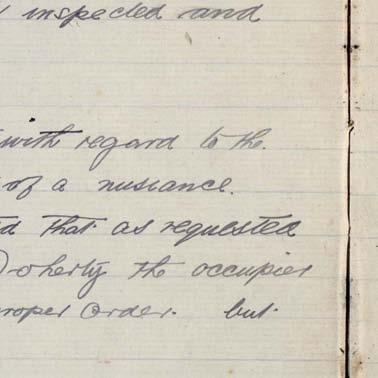 inspected and
with regard to the
of a nusiance.
that as requested
Doherty the occupier
proper order. but